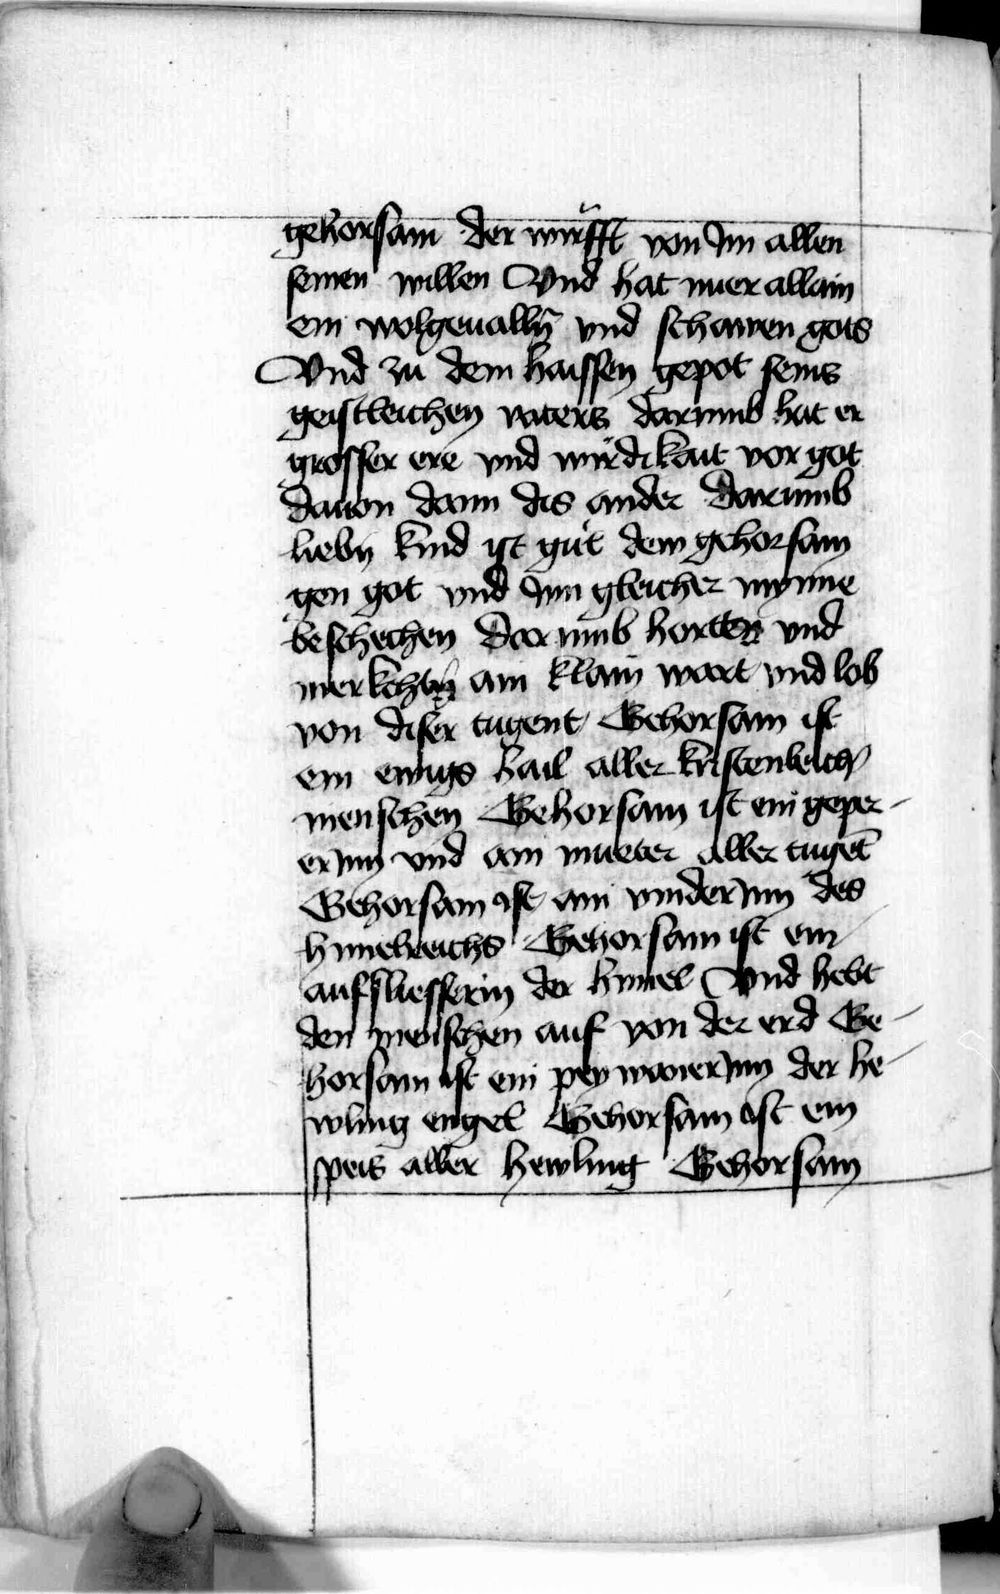 gehorsam der würfft von Im allen
seinen willen Vnd hat nuer allain
ein wolgeualln̄ vnd schawen gots
Vnd zu dem haissen gepot seins
geistleichen vaters darumb hat er
grosser ere vnd wirdikait vor got
dauon dann dis ander Darumb
liebn kind ist gůt dem gehorsam
gen got vnd Inn gleicher mynne
beschechen Darumb horten vnd
merkcht ain klain wort vnd lob
von diser tugent Gehorsam ist
ein ewigs hail aller kristenleich
menschen Gehorsam ist ein geper-
erynn vnd ain mueter aller tugēt
Gehorsam ist ain vinderynn des
himelreichs Gehorsam ist ein
aufsliesserin der himel Vnd hebt
den menschen auf von der erd Ge-
horsam ist ein peywanerynn der he-
wling engel Gehorsam ist ein
speis aller hewling Gehorsam